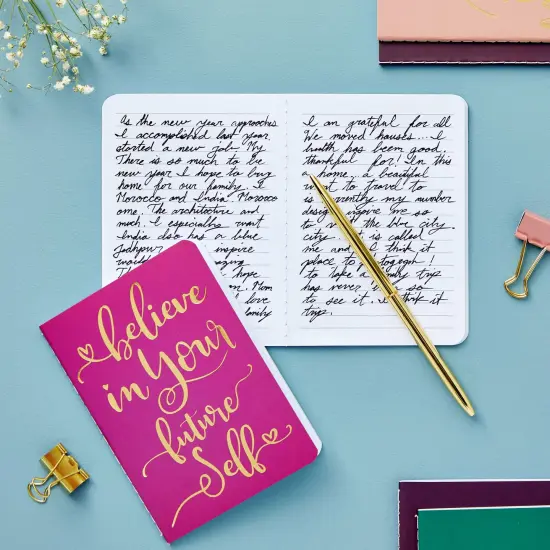 As the new year approaches
I accomplished last year
started a new job. My
There is so much to be
new year I hope to buy
home for our family. I
Morocco and India. Morocco
ome. The architecture and
much. I especially want
India also has a blue
Jodhpur inspire
hope
Mom
love
family
I am grateful for all
We moved houses... I
health has been good.
thankful for! In this
a home. a beautiful
want to travel to
is currently my number
design inspire me so
to visit the blue city
city. is called
me and I think it
place to
to take a family trip
has never so
to see it. I think it
trip.
believe
in Your
future
Self